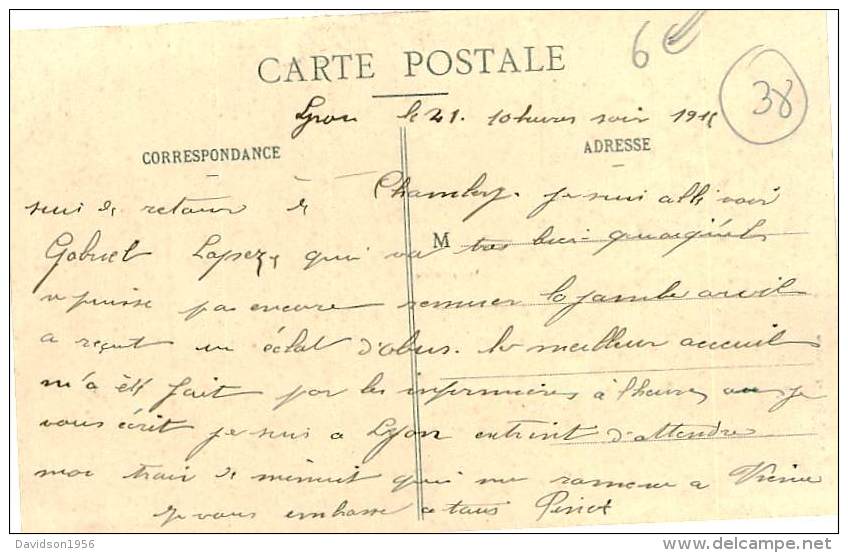 6 €
38
CARTE POSTALE
Lyon le 21. 10 heures soir 191
CORRESPONDANCE
ADRESSE
suis de retour de Chambery. je suis allé voir
Gabriel Lopez, qui va tres bien quoiqu'il
M
n puisse pas encore remuer la jambe ou il
a reçut un éclat d'obus. le meilleur acceuil
m'a été fait par les infirmières à l'heure ou je
vous écrit je suis a Lyon entrint d'attendre
mon train de minuit qui me ramene a Vienne
je vous embrasse a tous
Davidson1956
www.delcampe.net